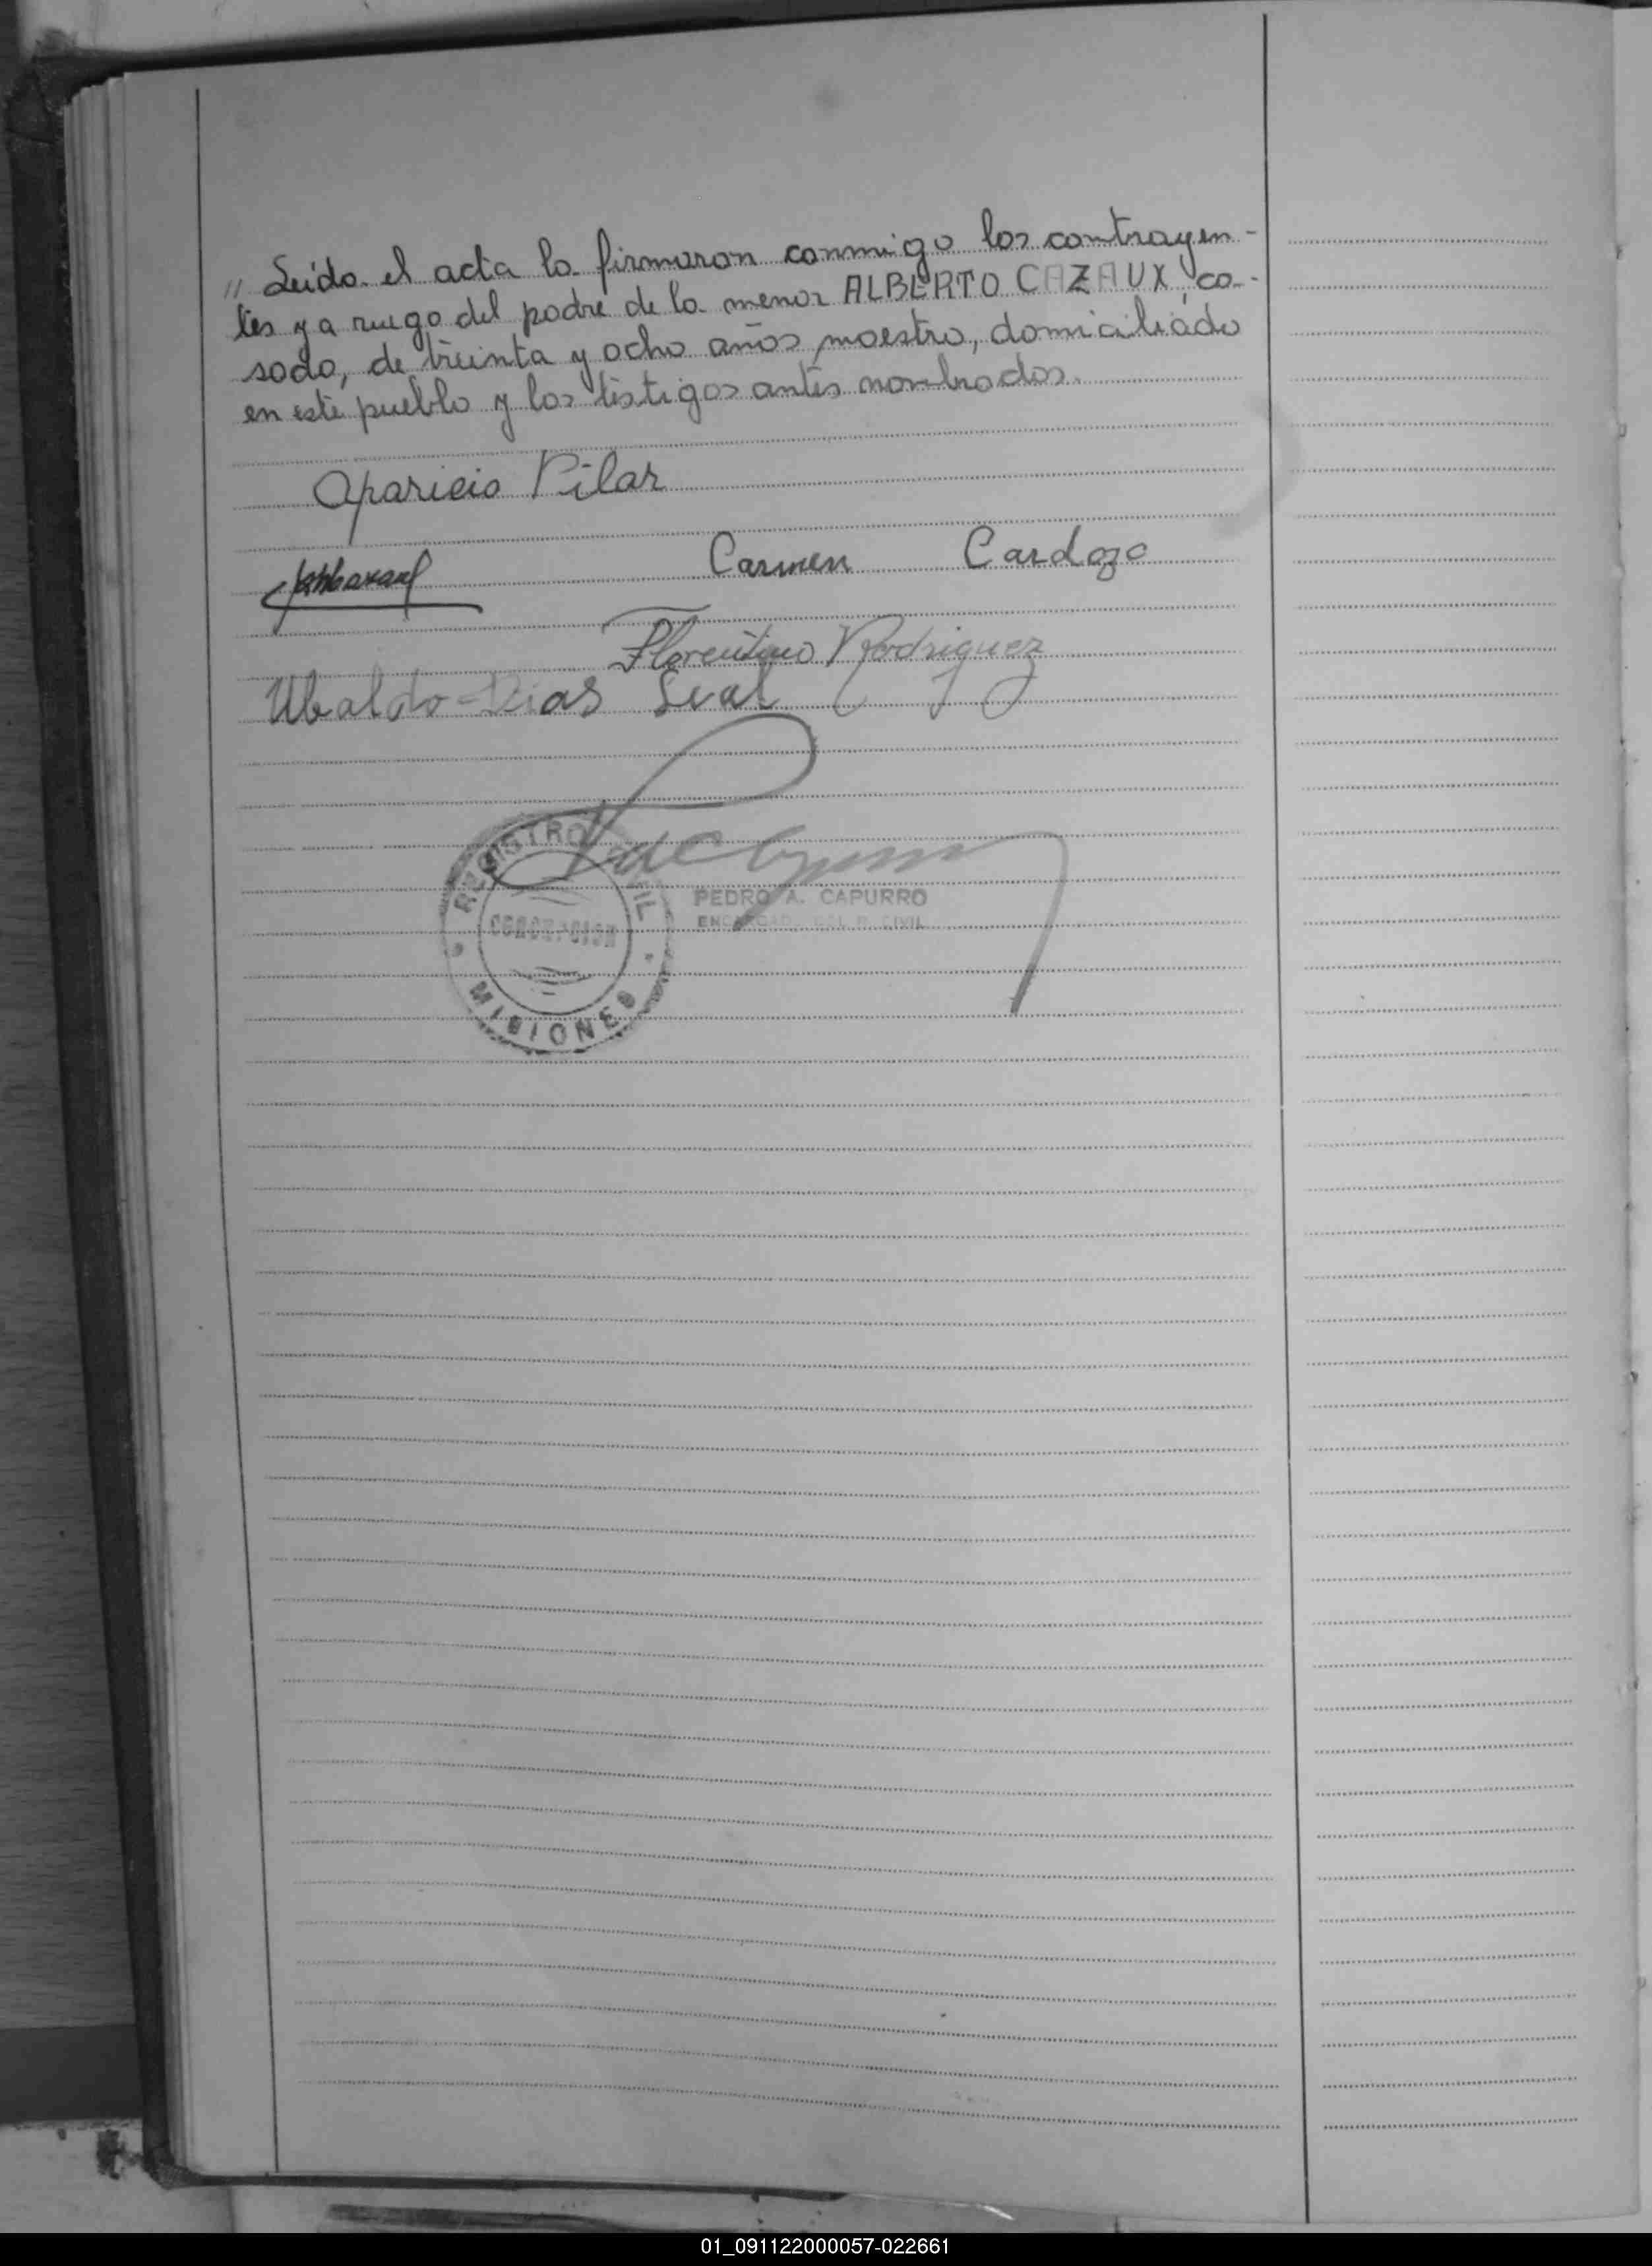 " Leida el acta la firmaron conmigo los contrayen-
tes y a ruego del padre de la menor ALBERTO CAZAUX, ca-
sado, de treinta y ocho años, maestro, domiciliado
en este pueblo y los testigos antes nombrados.
Aparicio Pilar
Carmen Cardozo
Florentino Rodriguez
Ubaldo Dias Leal
REGISTRO CIVIL
CONCEPCION
MISIONES
PEDRO A. CAPURRO
ENCARGADO DEL R. CIVIL
01_091122000057-022661